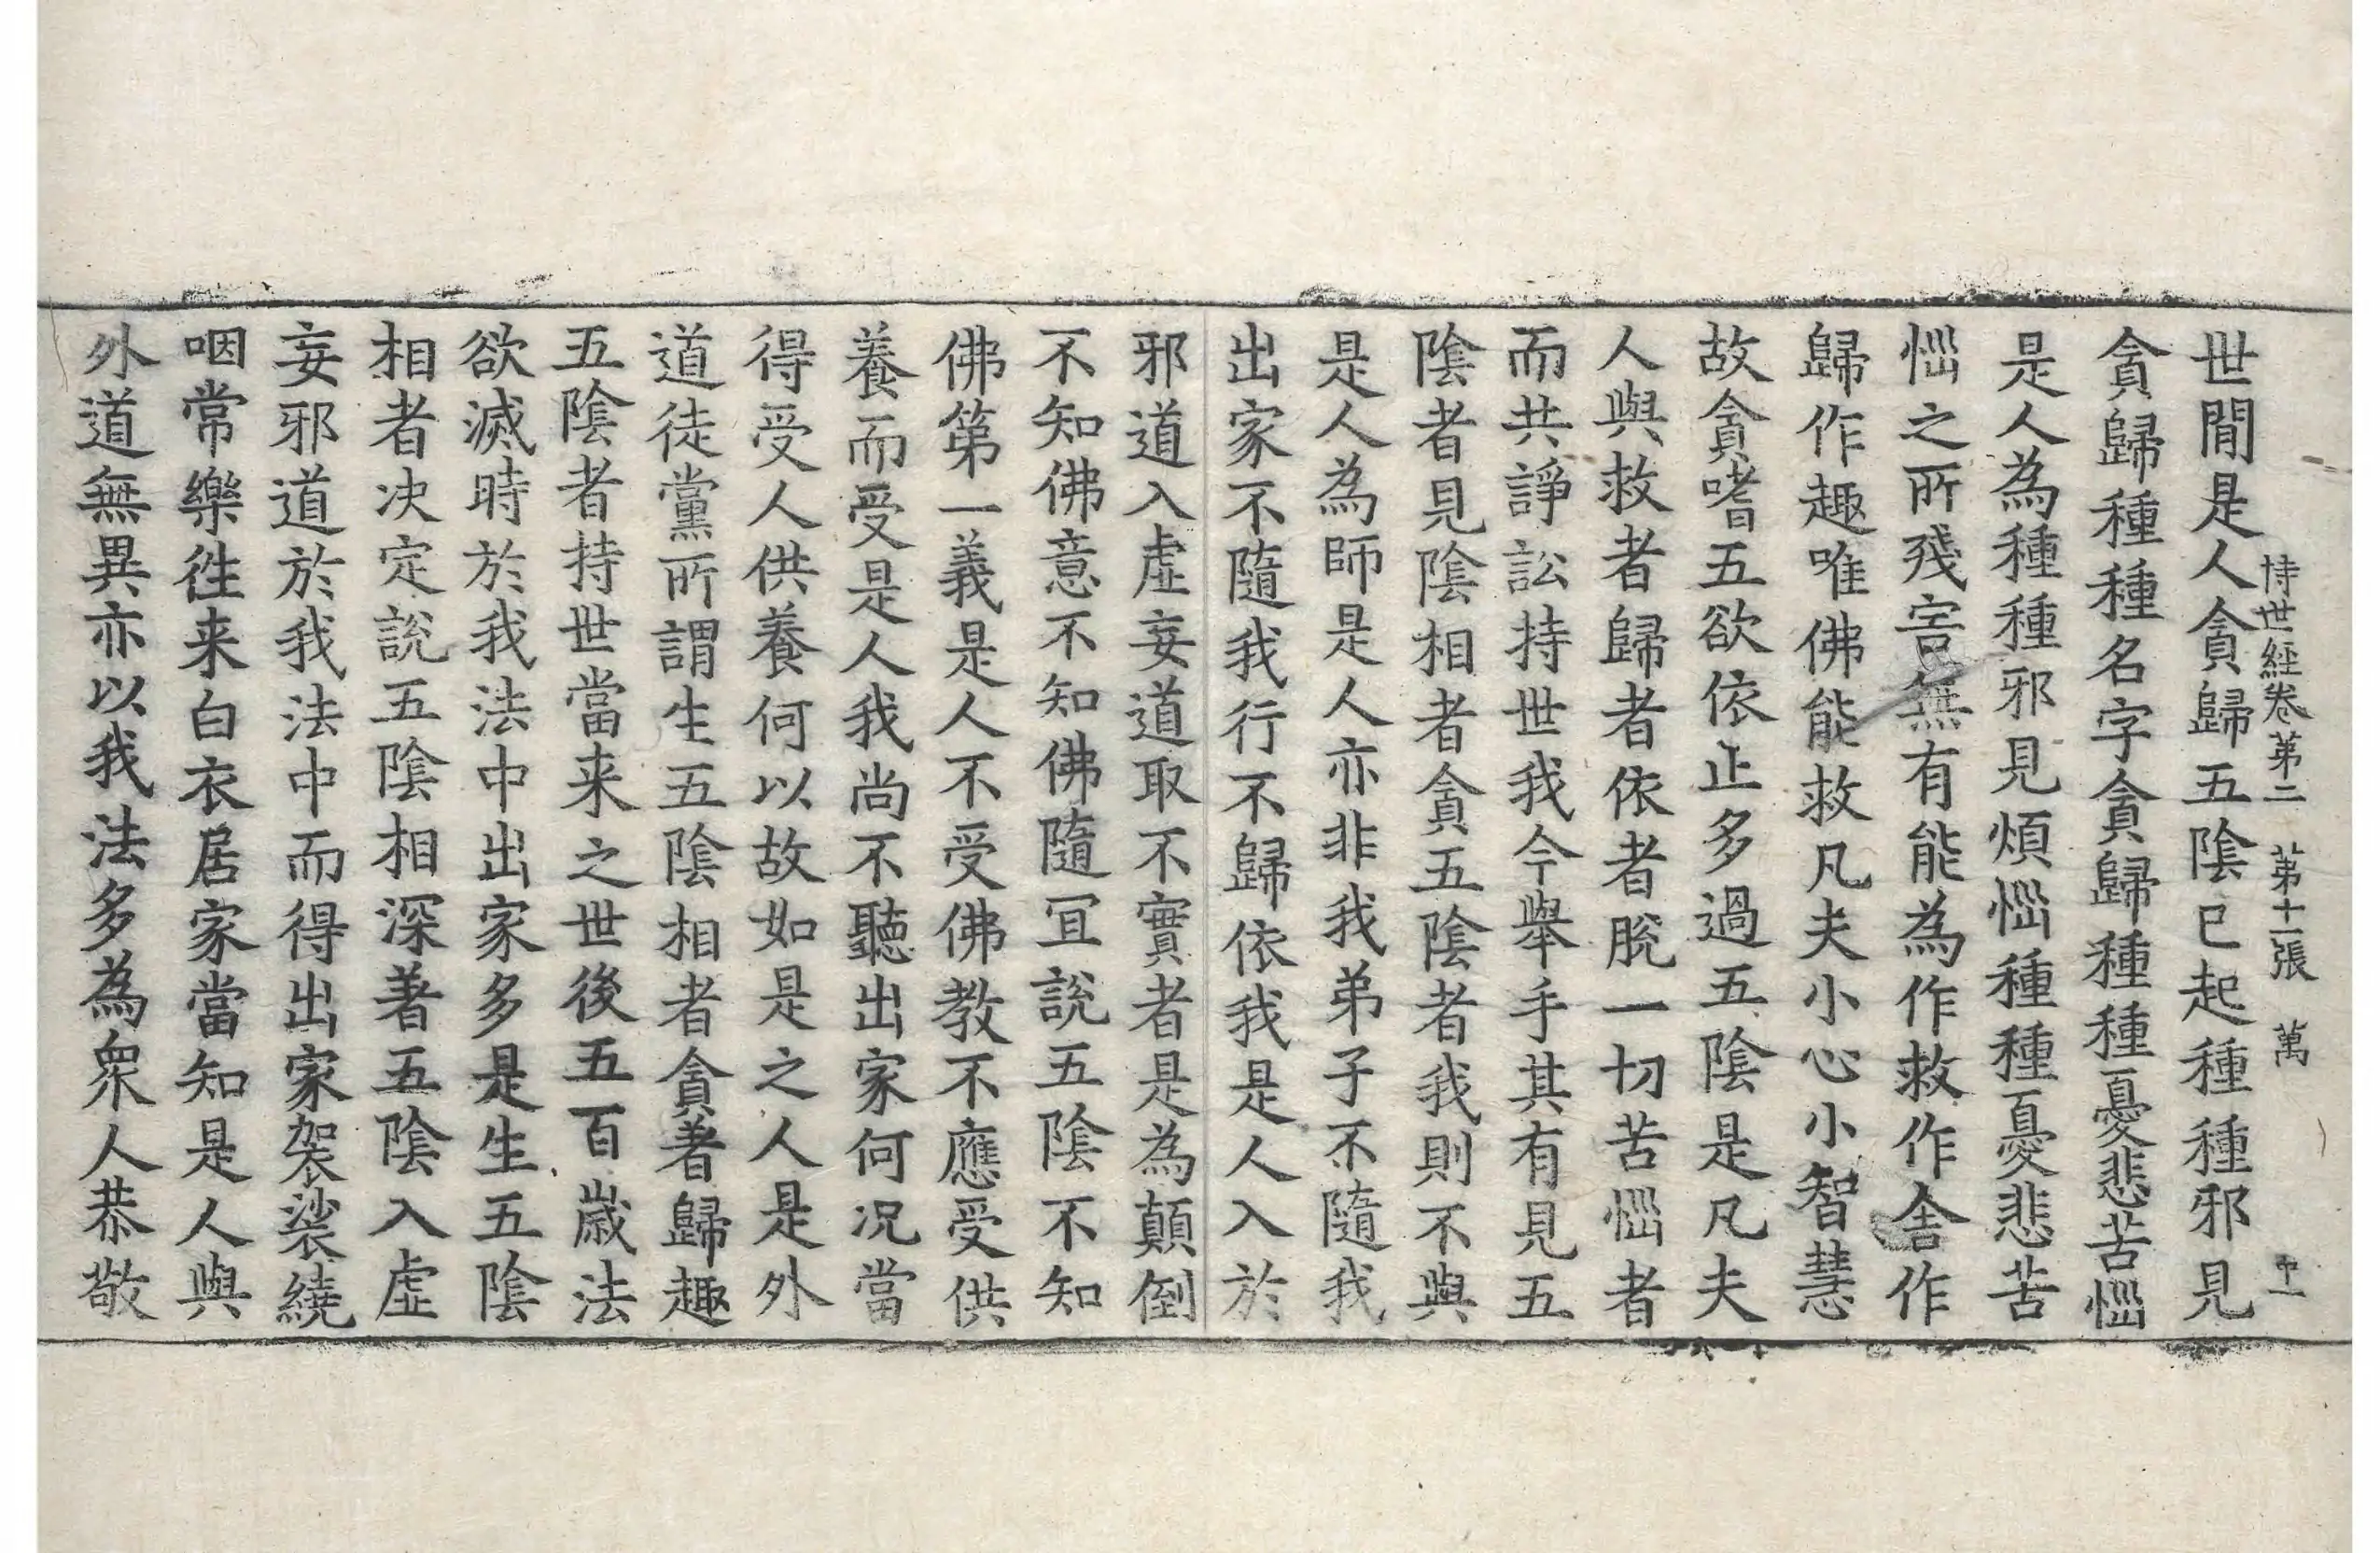 持世経卷第二　第十一張　萬
世間是人貪歸五陰已起種種邪見
貪歸種種名字貪歸種種憂悲苦惱
是人為種種邪見煩惱種種憂悲苦
惱之所殘害無有能為作救作舍作
歸作趣唯佛能救凡夫小心小智慧
故貪嗜五欲依止多過五陰是凡夫
人與救者歸者依者脫一切苦惱者
而共諍訟持世我今舉手其有見五
陰者見陰相者貪五陰者我則不與
是人為師是人亦非我弟子不隨我
出家不隨我行不歸依我是人入於
邪道入虛妄道取不實者是為顛倒
不知佛意不知佛隨冝說五陰不知
佛第一義是人不受佛教不應受供
養而受是人我尚不聽出家何況當
得受人供養何以故如是之人是外
道徒黨所謂生五陰相者貪著歸趣
五陰者持世當来之世後五百歲法
欲滅時於我法中出家多是生五陰
相者決定說五陰相深著五陰入虛
妄邪道於我法中而得出家袈裟繞
咽常樂往来白衣居家當知是人與
外道無異亦以我法多為衆人恭敬